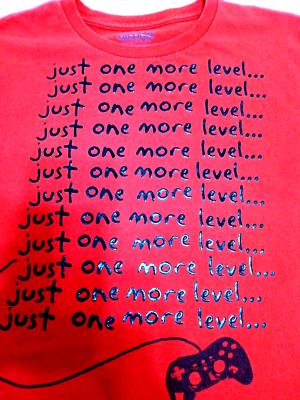 just one more level...
just one more level...
just one more level...
just one more level...
just one more level...
just one more level...
just one more level...
just one more level...
just one more level...
just one more level...
just one more level...
just one more level...